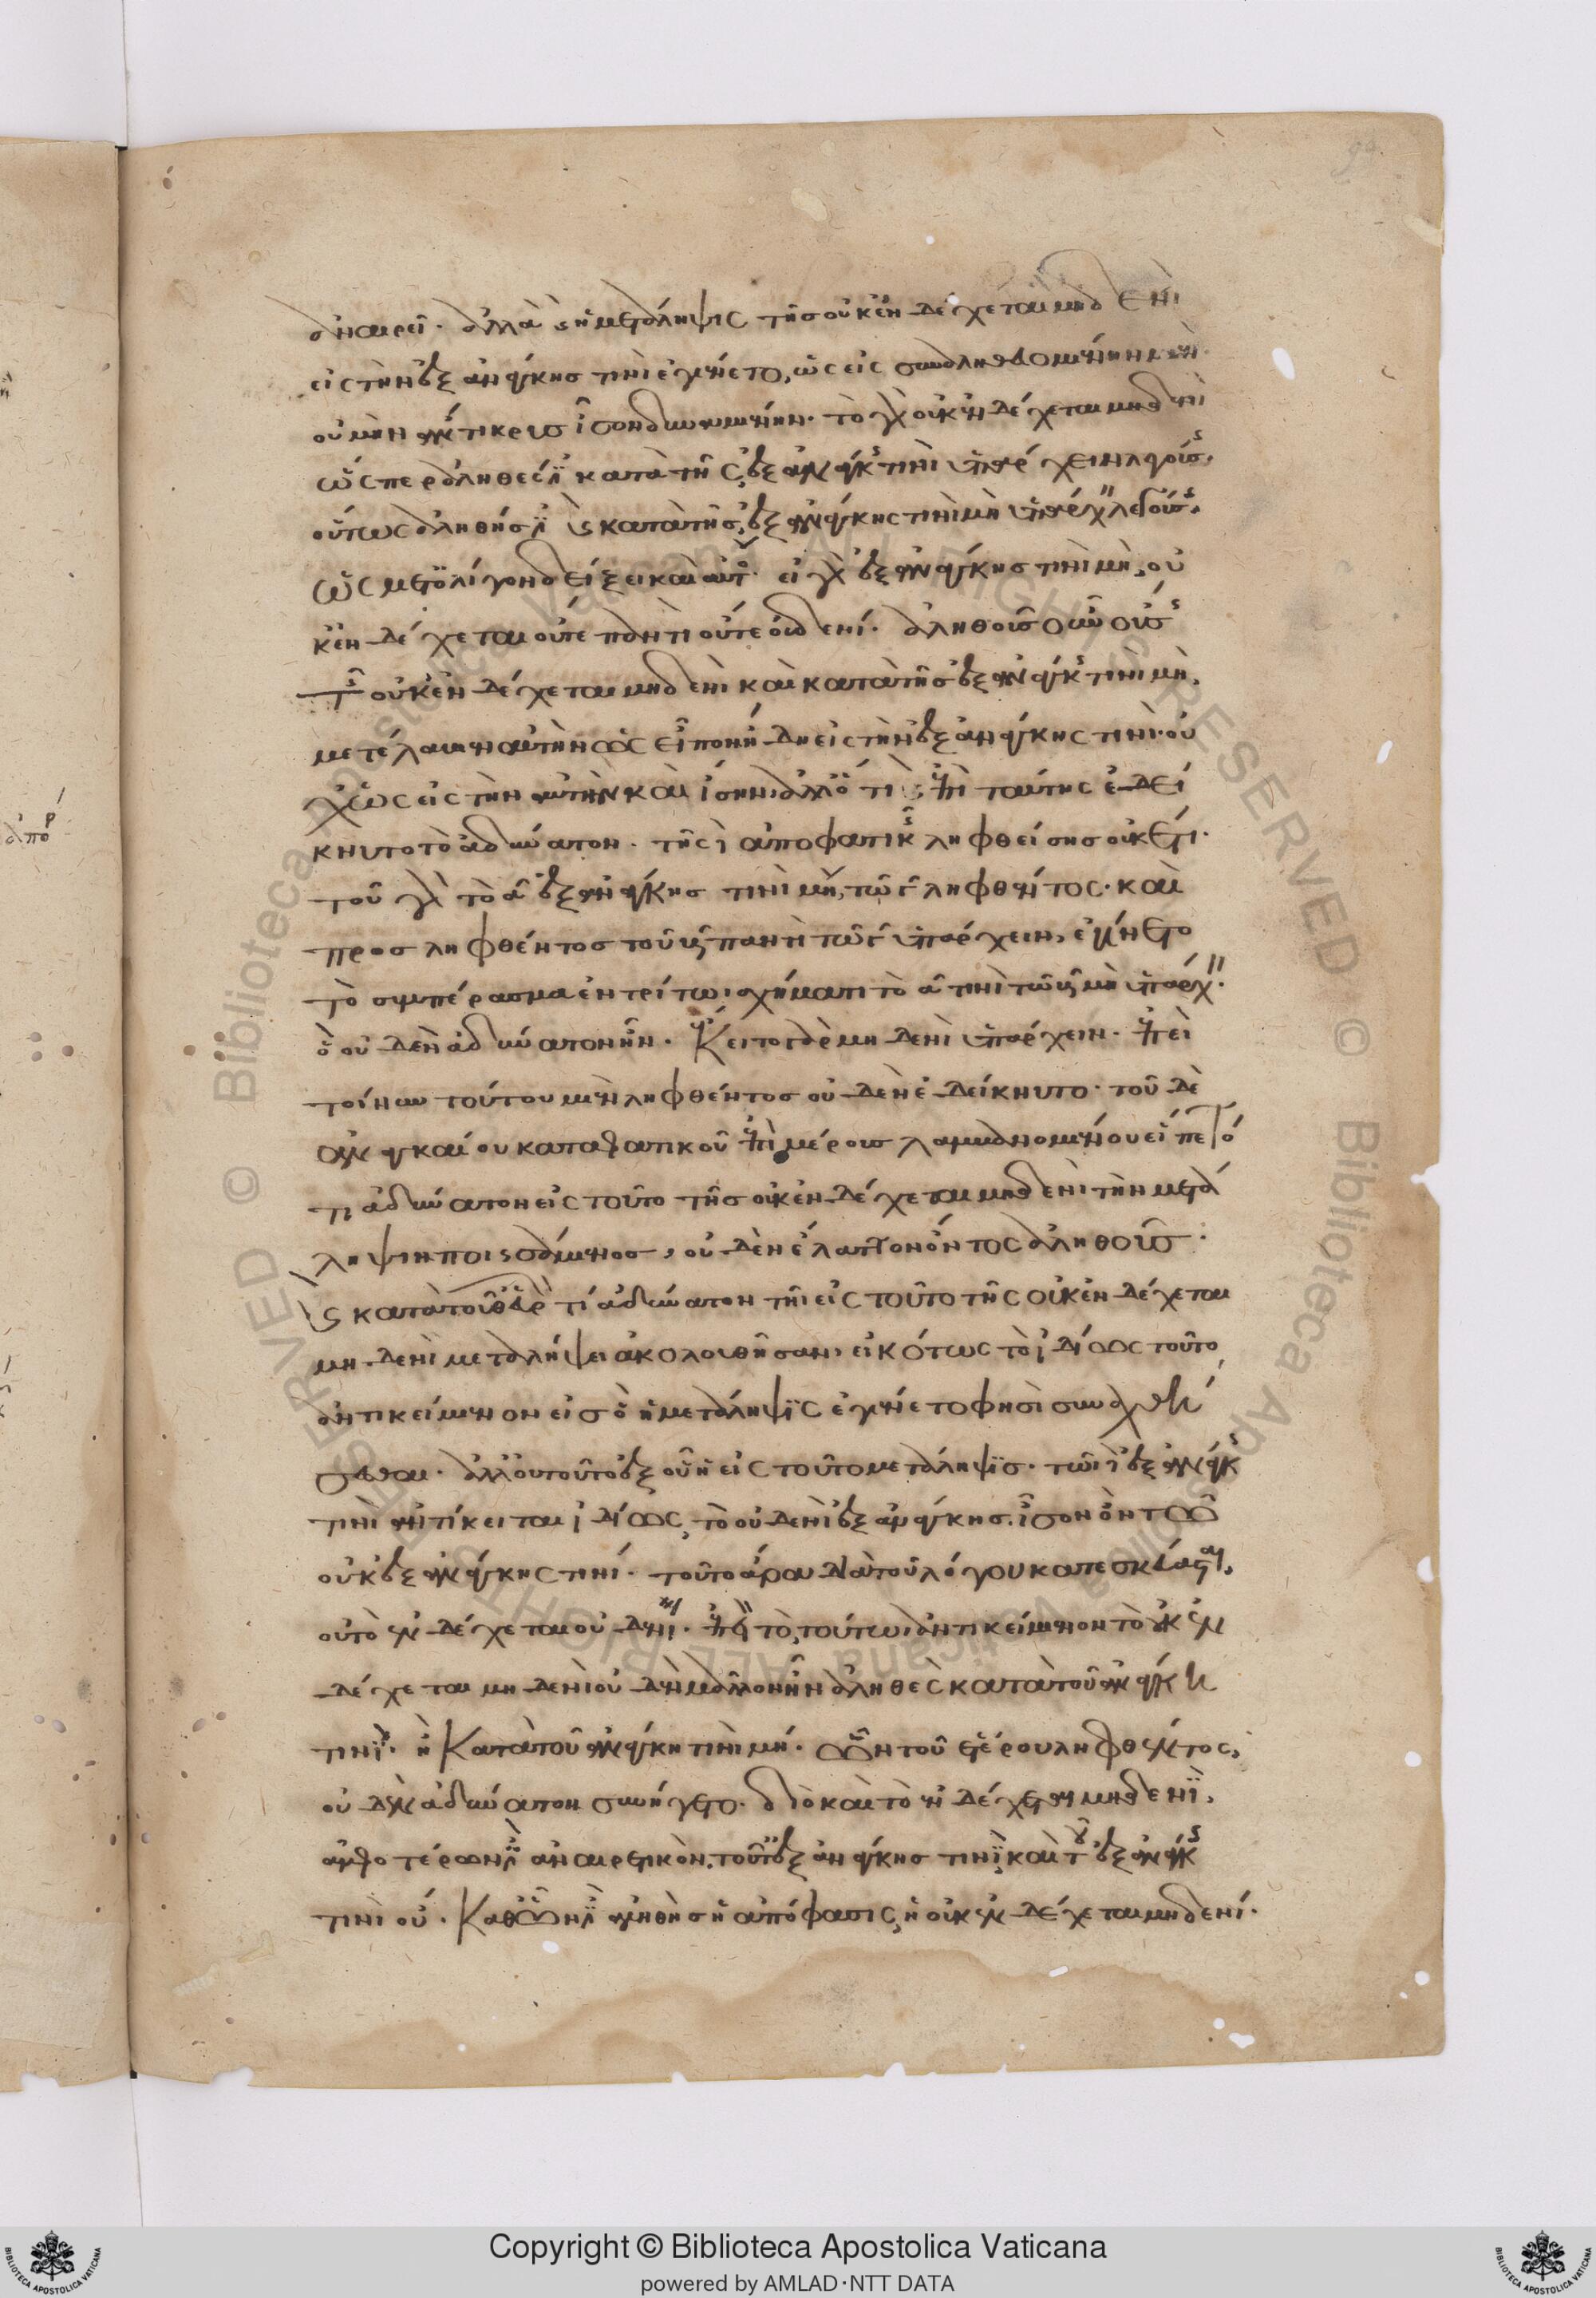 ἀναιρεῖ. ἀλλὰ καὶ ἡ μετάληψις τῆς οὐκ ἐνδέχεται μηδενὶ
εἰς τὴν ἐξ ἀνάγκης τινὶ ἐγένετο, ὡς εἰς συναληθευομένην
οὐ μὴν ἄντικρυς ἰσοδυναμοῦσαν. τὸ γὰρ οὐκ ἐνδέχεται μηδενὶ
ὥσπερ ἀληθές ἐστι κατὰ τῆς ἐξ ἀνάγκης τινὶ ὑπάρχειν λεγούσης,
οὕτως ἀληθής ἐστι καὶ κατὰ τῆς ἐξ ἀνάγκης τινὶ μὴ ὑπάρχειν λεγούσης,
ὡς μετ' ὀλίγον δείξει καὶ αὐτός. εἰ γὰρ ἐξ ἀνάγκης τινὶ μή, οὐ
κ ἐνδέχεται οὔτε παντὶ οὔτε οὐδενί. ἀληθοῦς οὖν οὔσης
τῆς οὐκ ἐνδέχεται μηδενὶ καὶ κατὰ τῆς ἐξ ἀνάγκης τινὶ μή,
μετέλαβεν αὐτὴν ὡς εἶπον ἤδη εἰς τὴν ἐξ ἀνάγκης τινί· οὐ
χ ὡς εἰς τὴν αὐτὴν καὶ ἴσην, ἀλλ' ὅτι καὶ ἐπὶ ταύτης ἐδεί
κνυτο τὸ ἀδύνατον. τῆς δὲ ἀποφατικῆς ληφθείσης οὐκέτι.
τοῦ γὰρ τὸ α ἐξ ἀνάγκης τινὶ μὴ τῷ γ ληφθέντος. καὶ
προσληφθέντος τοῦ β παντὶ τῷ γ ὑπάρχειν, ἐγίνετο
τὸ συμπέρασμα ἐν τρίτωι σχήματι τὸ α τινὶ τῷ β μὴ ὑπάρχειν.
ὃ οὐδὲν ἀδύνατον ἦν. ἔκειτο γὰρ μηδενὶ ὑπάρχειν. ἐπεὶ
τοίνυν τούτου μὲν ληφθέντος οὐδὲν ἐδείκνυτο. τοῦ δὲ
ἀναγκαίου καταφατικοῦ ἐπὶ μέρους λαμβανομένου εἵπετό
τι ἀδύνατον εἰς τοῦτο τῆς οὐκ ἐνδέχεται μηδενὶ τὴν μετά
ληψιν ποιησάμενος, οὐδὲν ἔλαττον ὄντος ἀληθοῦς
καὶ κατὰ τοῦ θατέρου τι ἀδύνατον τῆι εἰς τοῦτο τῆς οὐκ ἐνδέχεται
μηδενὶ μεταλήψει ἀκολουθῆσαν, εἰκότως τὸ ἰδίως τοῦτο
ἀντικείμενον εἰς ὃ ἡ μετάληψις ἐγένετο φησὶ συνάγε
σθαι. ἀλλ' οὐ τοῦτο ἐξ οὗ ἡ εἰς τοῦτο μετάληψις. τῶι δὲ ἐξ ἀνάγκης
τινὶ ἀντίκειται ἰδίως τὸ οὐδενὶ ἐξ ἀνάγκης. ἴσον ὂν τῷ
οὐκ ἐξ ἀνάγκης τινί. τοῦτο ἄρα διὰ τοῦ λόγου κατεσκεύασται,
οὐ τὸ ἐνδέχεται οὐδενί. ἐπεὶ τὸ τούτωι ἀντικείμενον τὸ οὐκ ἐν
δέχεται μηδενὶ οὐδὲν μᾶλλον ἦν ἀληθὲς κατὰ τοῦ ἀνάγκη
τινί. ἢ κατὰ τοῦ ἀνάγκη τινὶ μή. ὧν τοῦ ἑτέρου ληφθέντος,
οὐδὲν ἀδύνατον συνήγετο. διὸ καὶ τὸ ἐνδέχεσθαι μηδενί,
ἀμφοτέρων ἐστὶν ἀναιρετικόν, τοῦ τε ἐξ ἀνάγκης τινὶ καὶ τοῦ ἐξ ἀνάγκης
τινὶ οὔ. καθ' ὧν ἐστιν ἀληθὴς ἡ ἀπόφασις ἡ οὐκ ἐνδέχεται μηδενί.
Copyright © Biblioteca Apostolica Vaticana
powered by AMLAD·NTT DATA